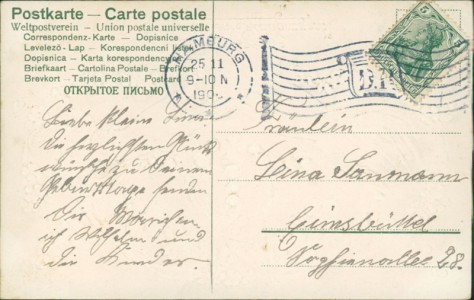 Postkarte – Carte postale
Weltpostverein – Union postale universelle
Correspondenz-Karte – Dopisnice
Levelező-Lap – Korespondencni listek
Dopisnica – Karta korespondency
Briefkaart – Cartolina Postale – Brefkort
Brevkort – Tarjeta Postal Postcard
ОТКРЫТОЕ ПИСЬМО
HAMBURG
25 11
9-10 N
190
D.R.
5
Liebe kleine
Die herzlichsten Glück
wünsche zu Deinem
Geburtstage senden
Dir
ich Wilhelm und
die Kinder.
Fräulein
Lina Sanmann
Eimsbüttel
Sophienallee 28.